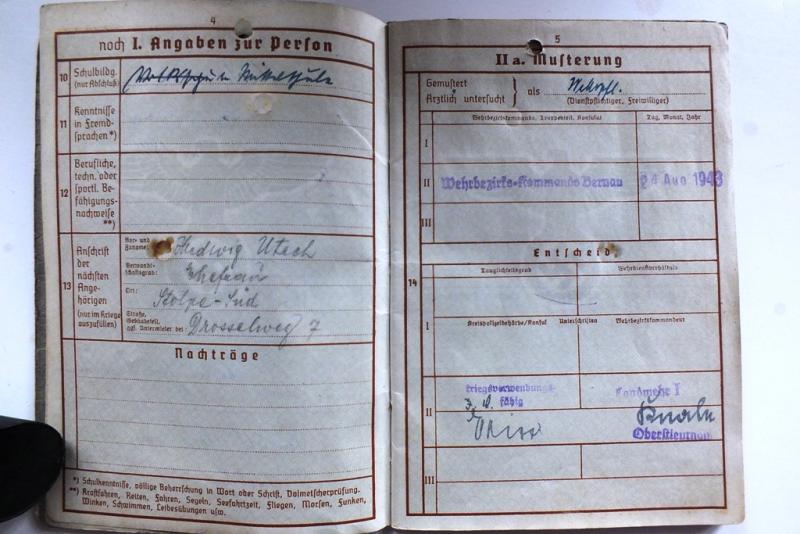 4
noch I. Angaben zur Person
10 Schulbildg. (nur Abschluß) Volksschule Mittelschule
11 Kenntnisse in Fremdsprachen*)
12 Berufliche, techn. oder sportl. Befähigungsnachweise **)
13 Anschrift der nächsten Angehörigen (nur im Kriege auszufüllen)
Vor- und Zuname: Hedwig Utech
Verwandtschaftsgrad: Ehefrau
Ort: Stolpe-Süd
Straße, Gebäudeteil, ggf. Untermieter bei: Drosselweg 7
Nachträge
*) Schulkenntnisse, völlige Beherrschung in Wort oder Schrift, Dolmetscherprüfung.
**) Kraftfahren, Reiten, Fahren, Segeln, Seefahrtzeit, Fliegen, Morsen, Funken,
Winken, Schwimmen, Leibesübungen usw.
5
II a. Musterung
Gemustert
Ärztlich untersucht } als Wehrpfl.
(Dienstpflichtiger, Freiwilliger)
Wehrbezirkskommando, Truppenteil, Konsulat Tag, Monat, Jahr
I
II Wehrbezirks-Kommando Bernau 24 Aug 1943
III
Entscheid
Tauglichkeitsgrad Wehrdienstverhältnis
14
I
Kreispolizeibehörde/Konsul Unterschriften Wehrbezirkskommandeur
kriegsverwendungsfähig Landwehr I
II
Oberstleutnant
III